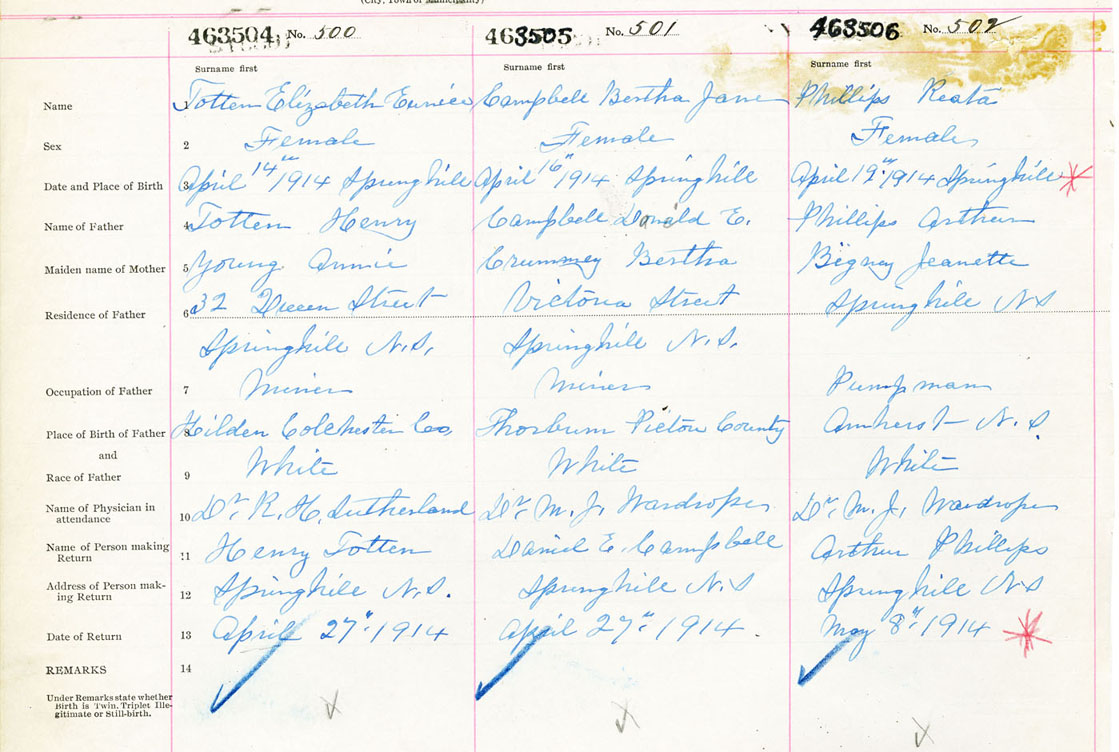 (City, Town or Municipality)
463504 No. 500 463505 No. 501 463506 No. 502
Surname first Surname first Surname first
Name 1 Totten Elizabeth Eunice Campbell Bertha Jane Phillips Reata
Sex 2 Female Female Female
Date and Place of Birth 3 April 14th 1914 Springhill April 16" 1914 Springhill April 19" 1914 Springhill
Name of Father 4 Totten Henry Campbell E. Phillips Arthur
Maiden name of Mother 5 Young Annie Crummey Bertha Bigney Jeanette
Residence of Father 6 32 Queen Street Victoria Street Springhill N S
Springhill N.S. Springhill N.S.
Occupation of Father 7 Miner Miner Pumpman
Place of Birth of Father 8 Hilden Colchester Co. Thorburn Pictou County Amherst N.S
and
Race of Father 9 White White White
Name of Physician in
attendance 10 Dr. R. H. Sutherland Dr. M. J. Wardrope Dr. M. J. Wardrope
Name of Person making
Return 11 Henry Totten Daniel E. Campbell Arthur Phillips
Address of Person mak-
ing Return 12 Springhill N.S. Springhill N.S Springhill N S
Date of Return 13 April 27" 1914 April 27" 1914 May 8" 1914
REMARKS 14
Under Remarks state whether
Birth is Twin, Triplet Ille-
gitimate or Still-birth.